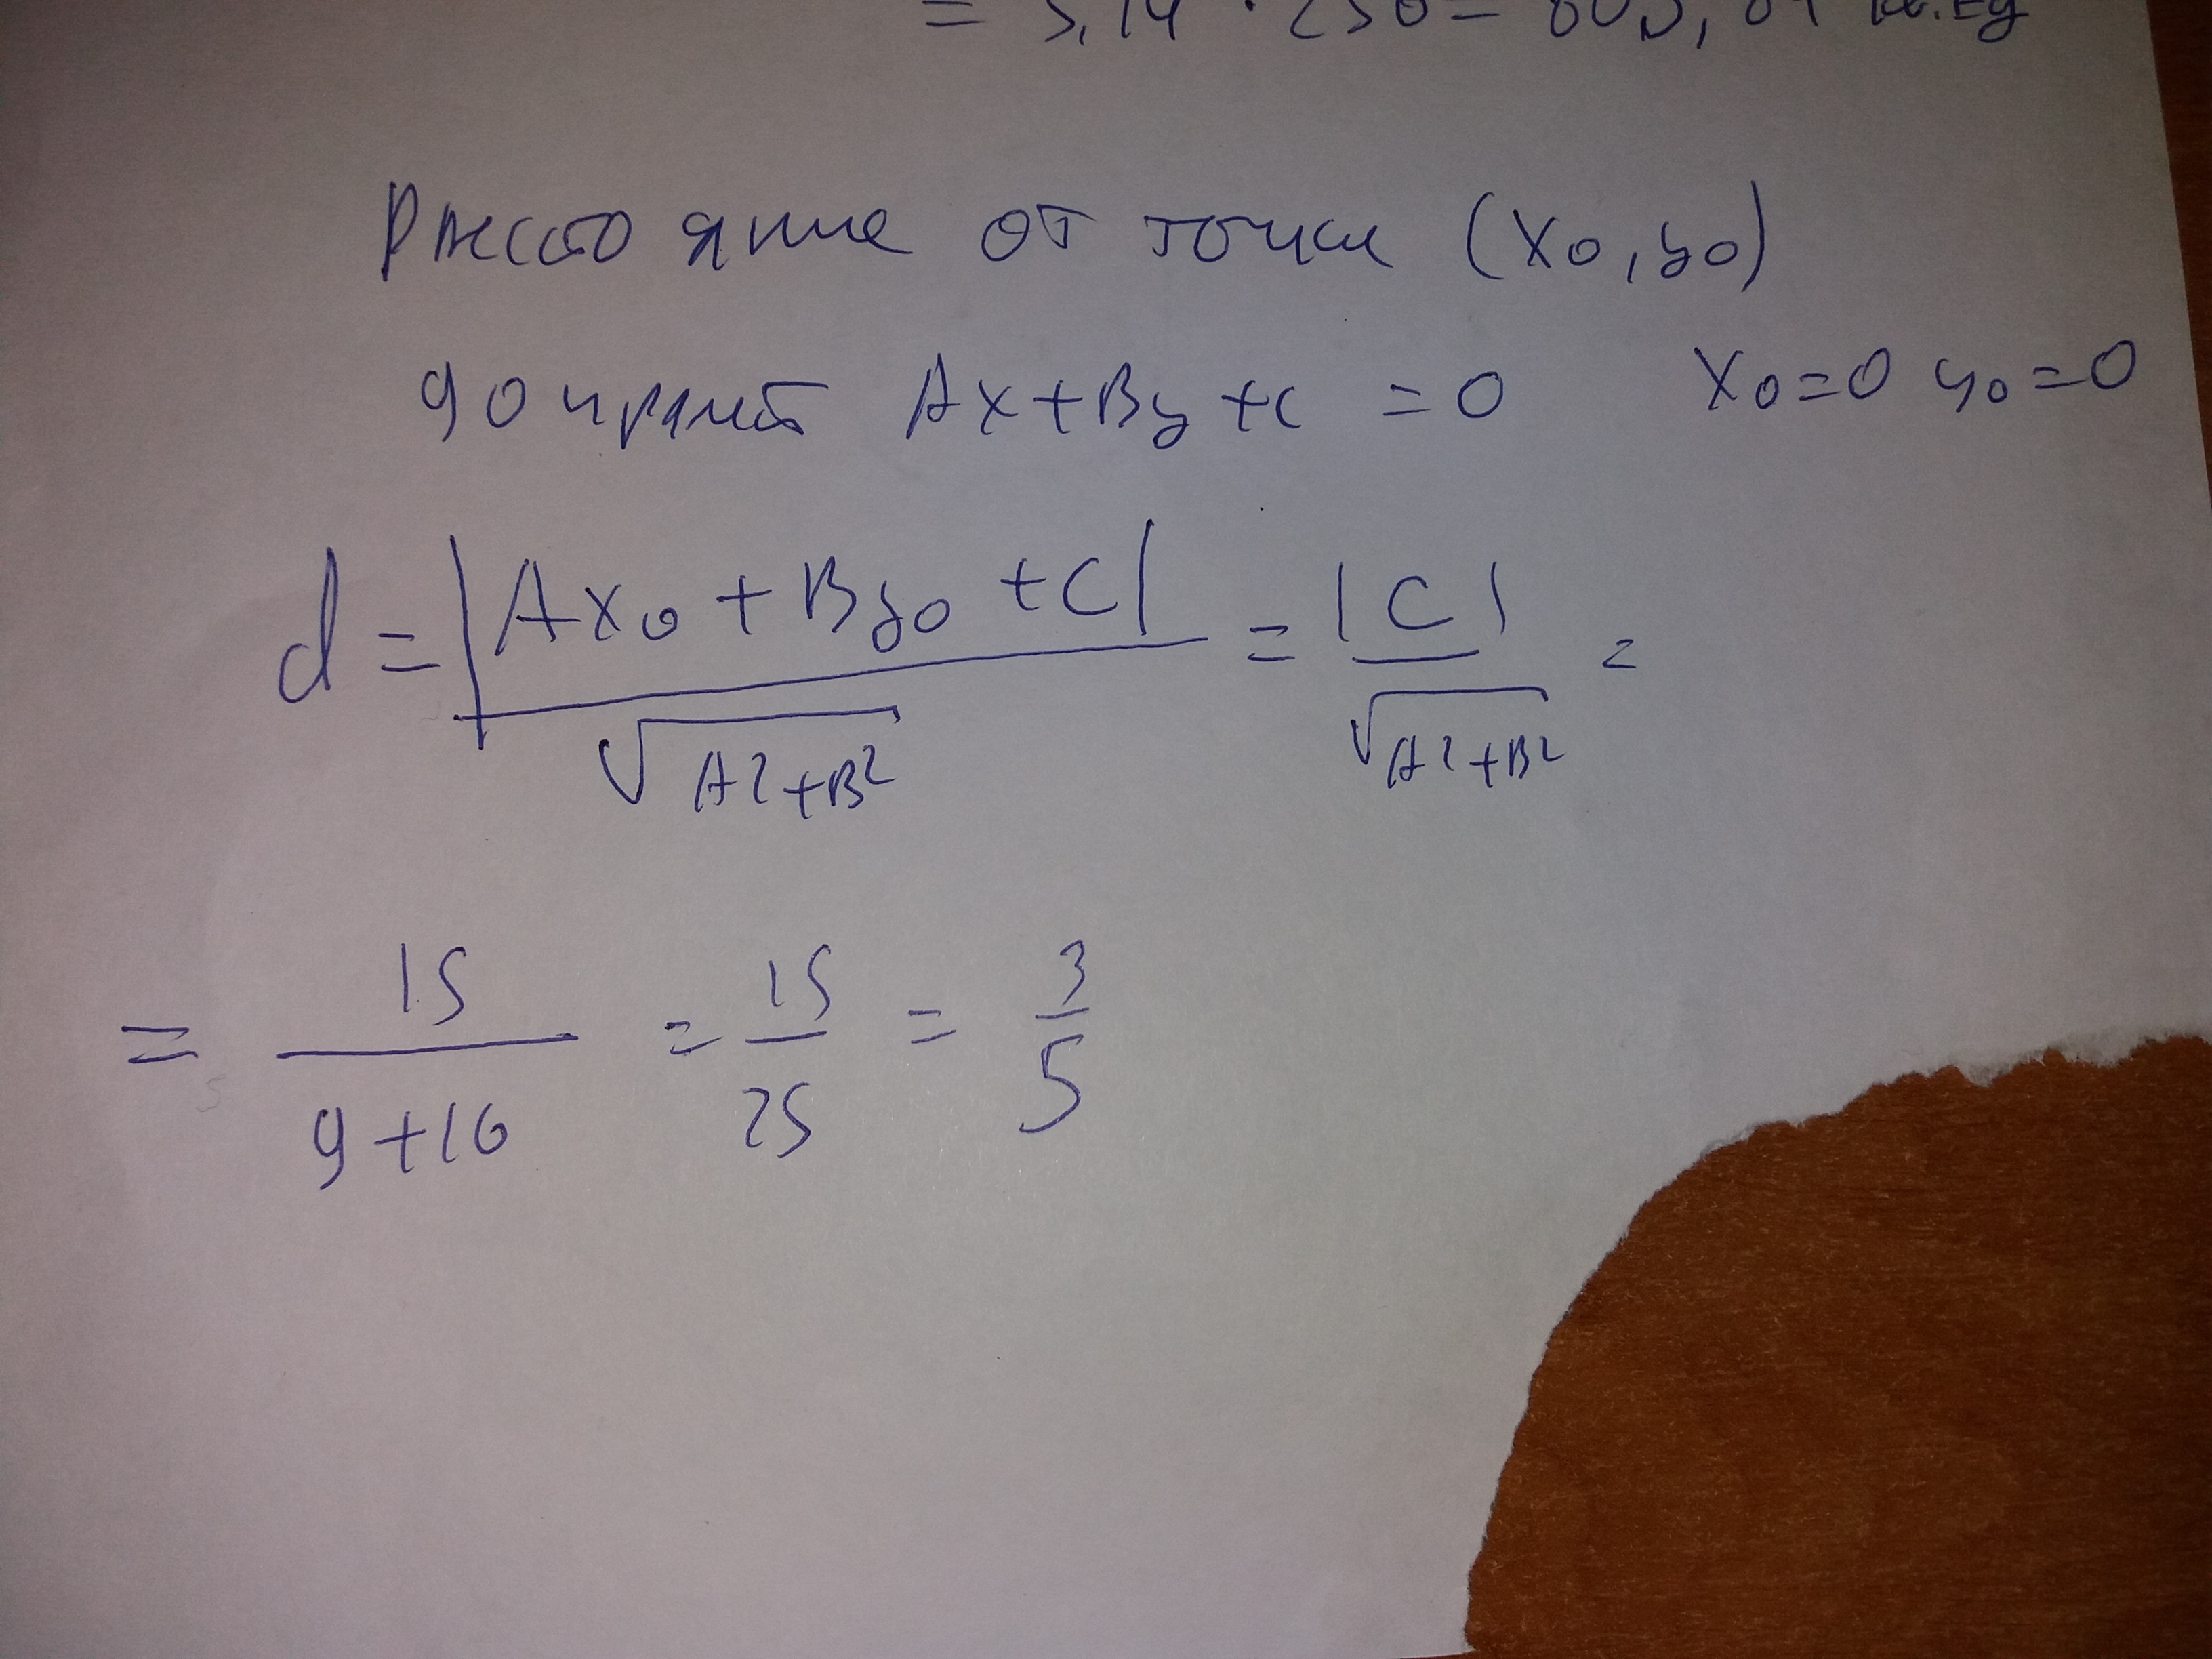 = 3,14 · 256 = 803,84 кв.ед
Расстояние от точки (x₀, y₀)
до прямой Ax+By+c = 0 x₀=0 y₀=0
d = |Ax₀ + By₀ + C| / √A²+B² = |C| / √A²+B² =
= 15 / 9+16 = 15 / 25 = 3 / 5